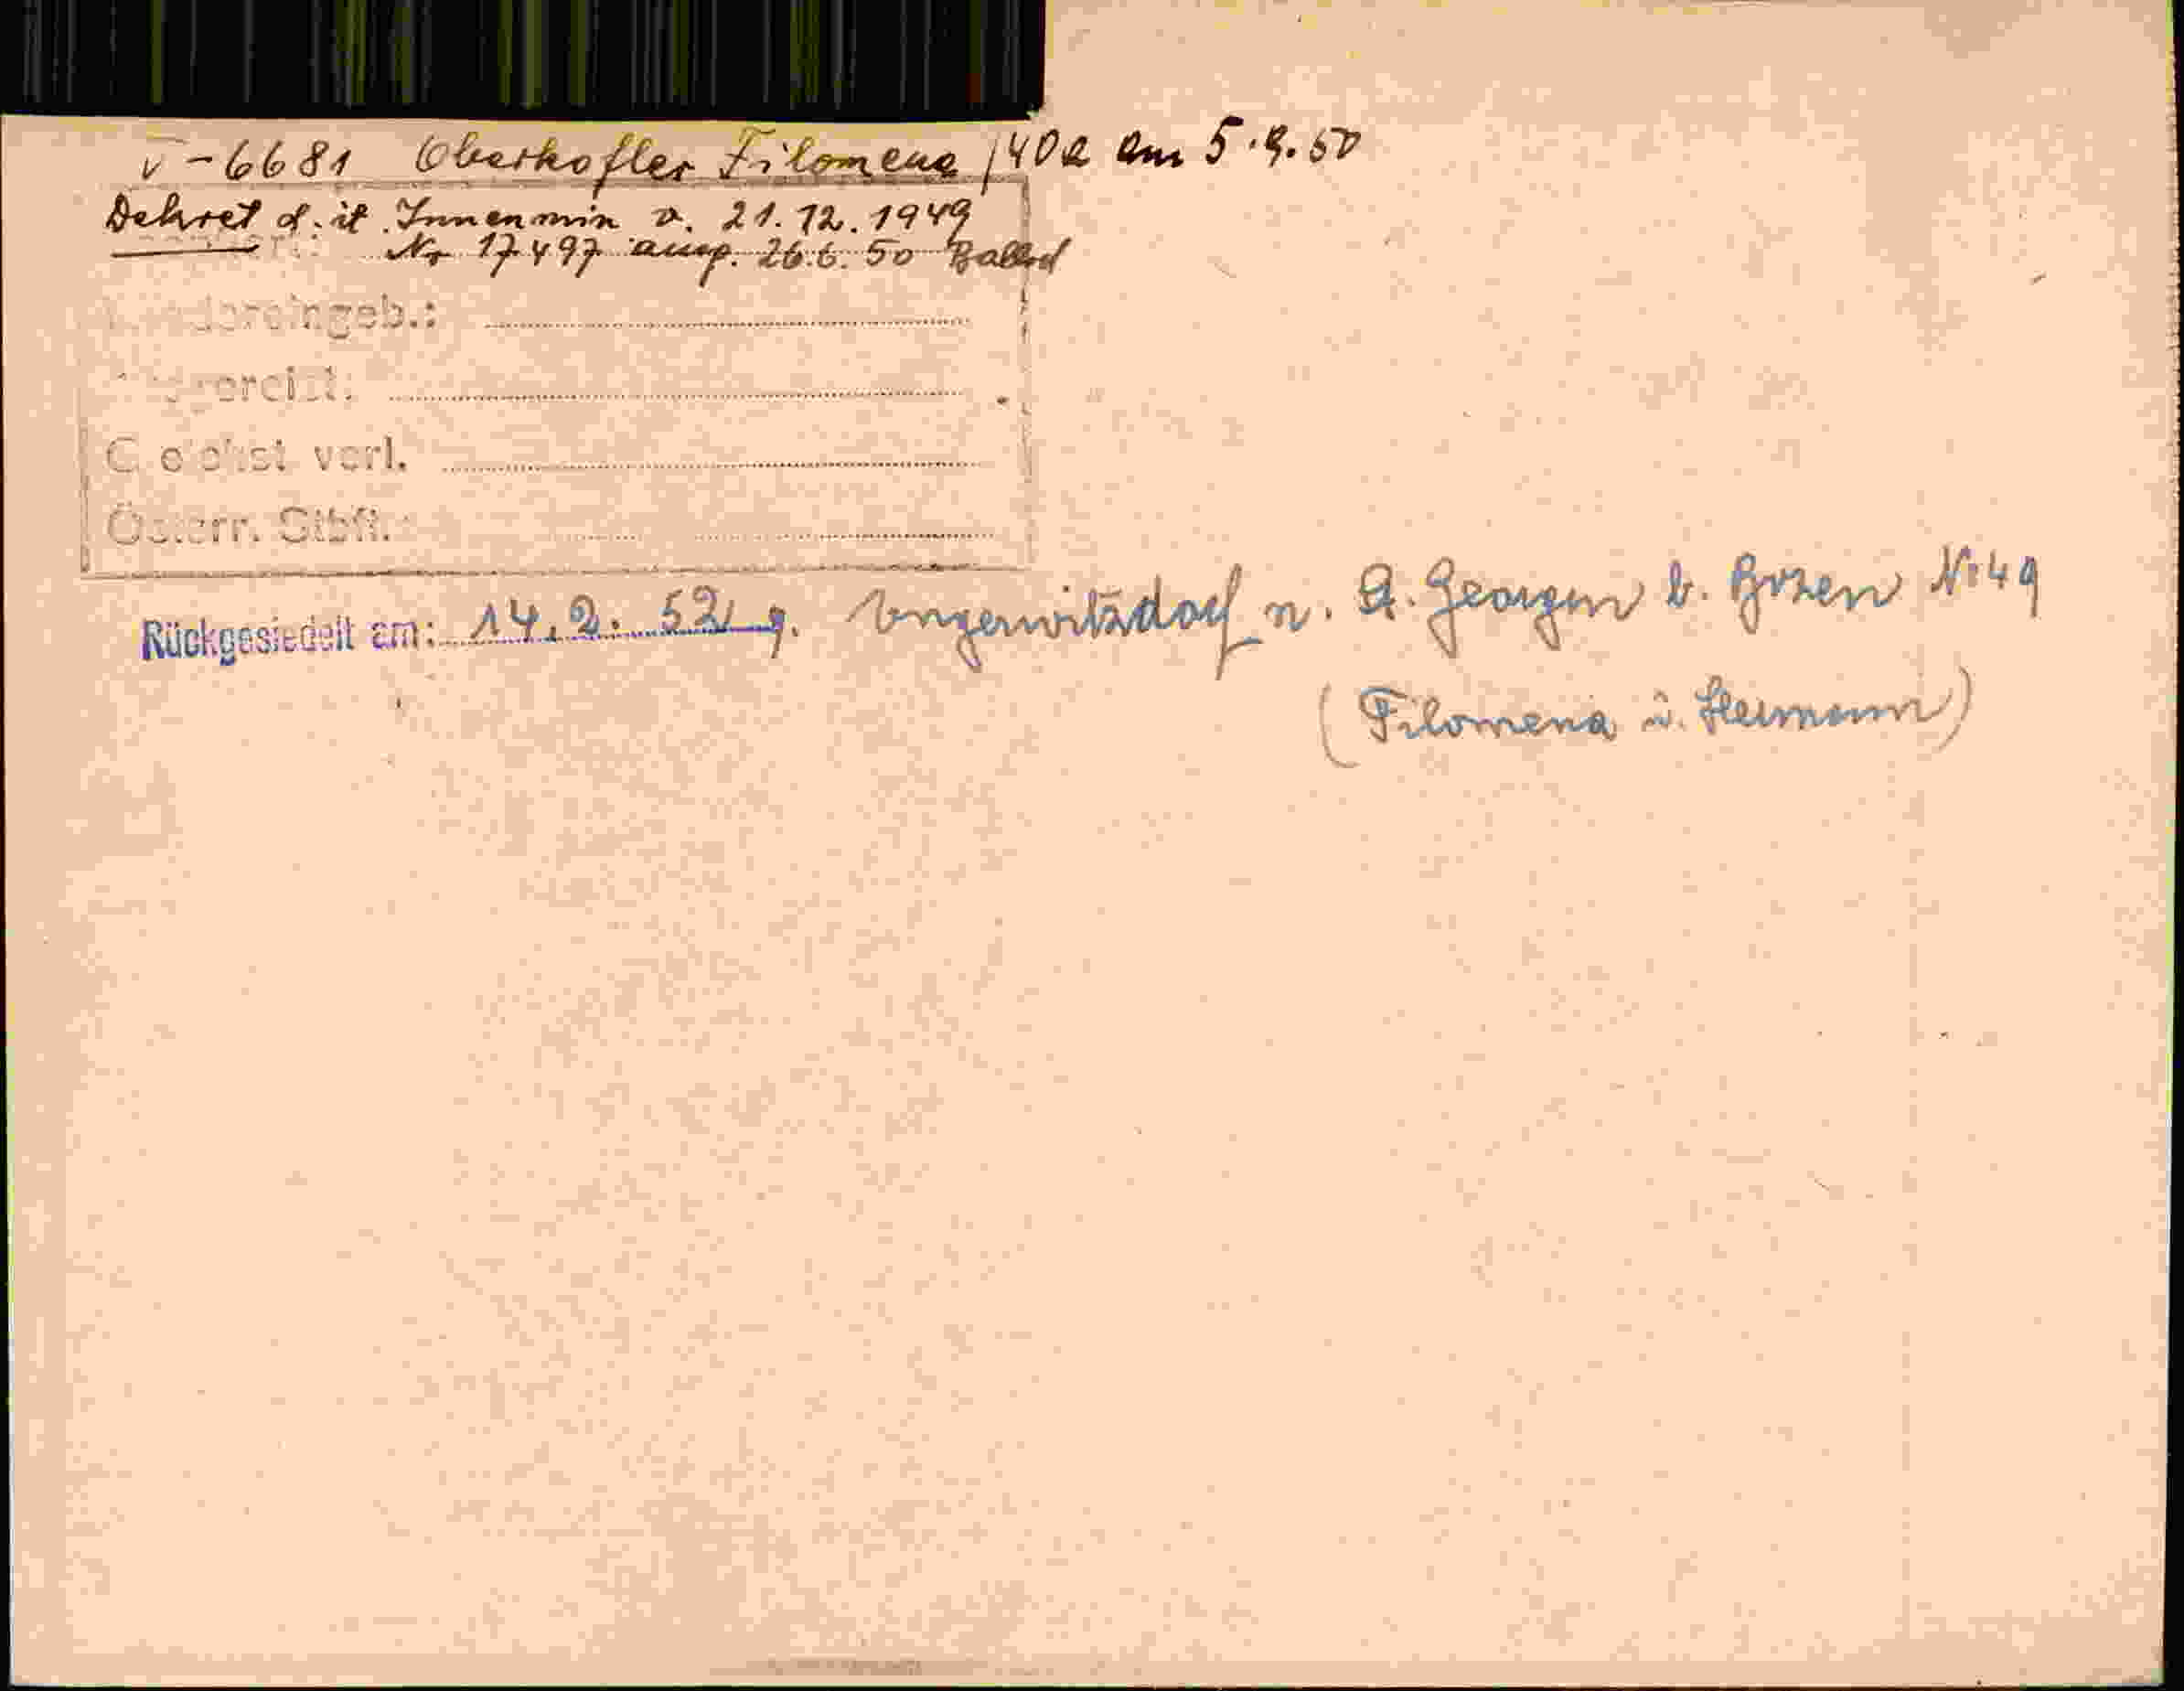 V-6681 Oberhofler Filomena /40a am 5.9.50
Dekret d. it. Innenmin v. 21.12.1949
Nr 17497 ausg. 26.6.50
Wiedereingeb.:
Österr. Stbft.:
Rückgesiedelt am: 14.2.52 v. Engerwitzdorf n. St. Georgen b. Bozen No 49
(Filomena u. Hermann)